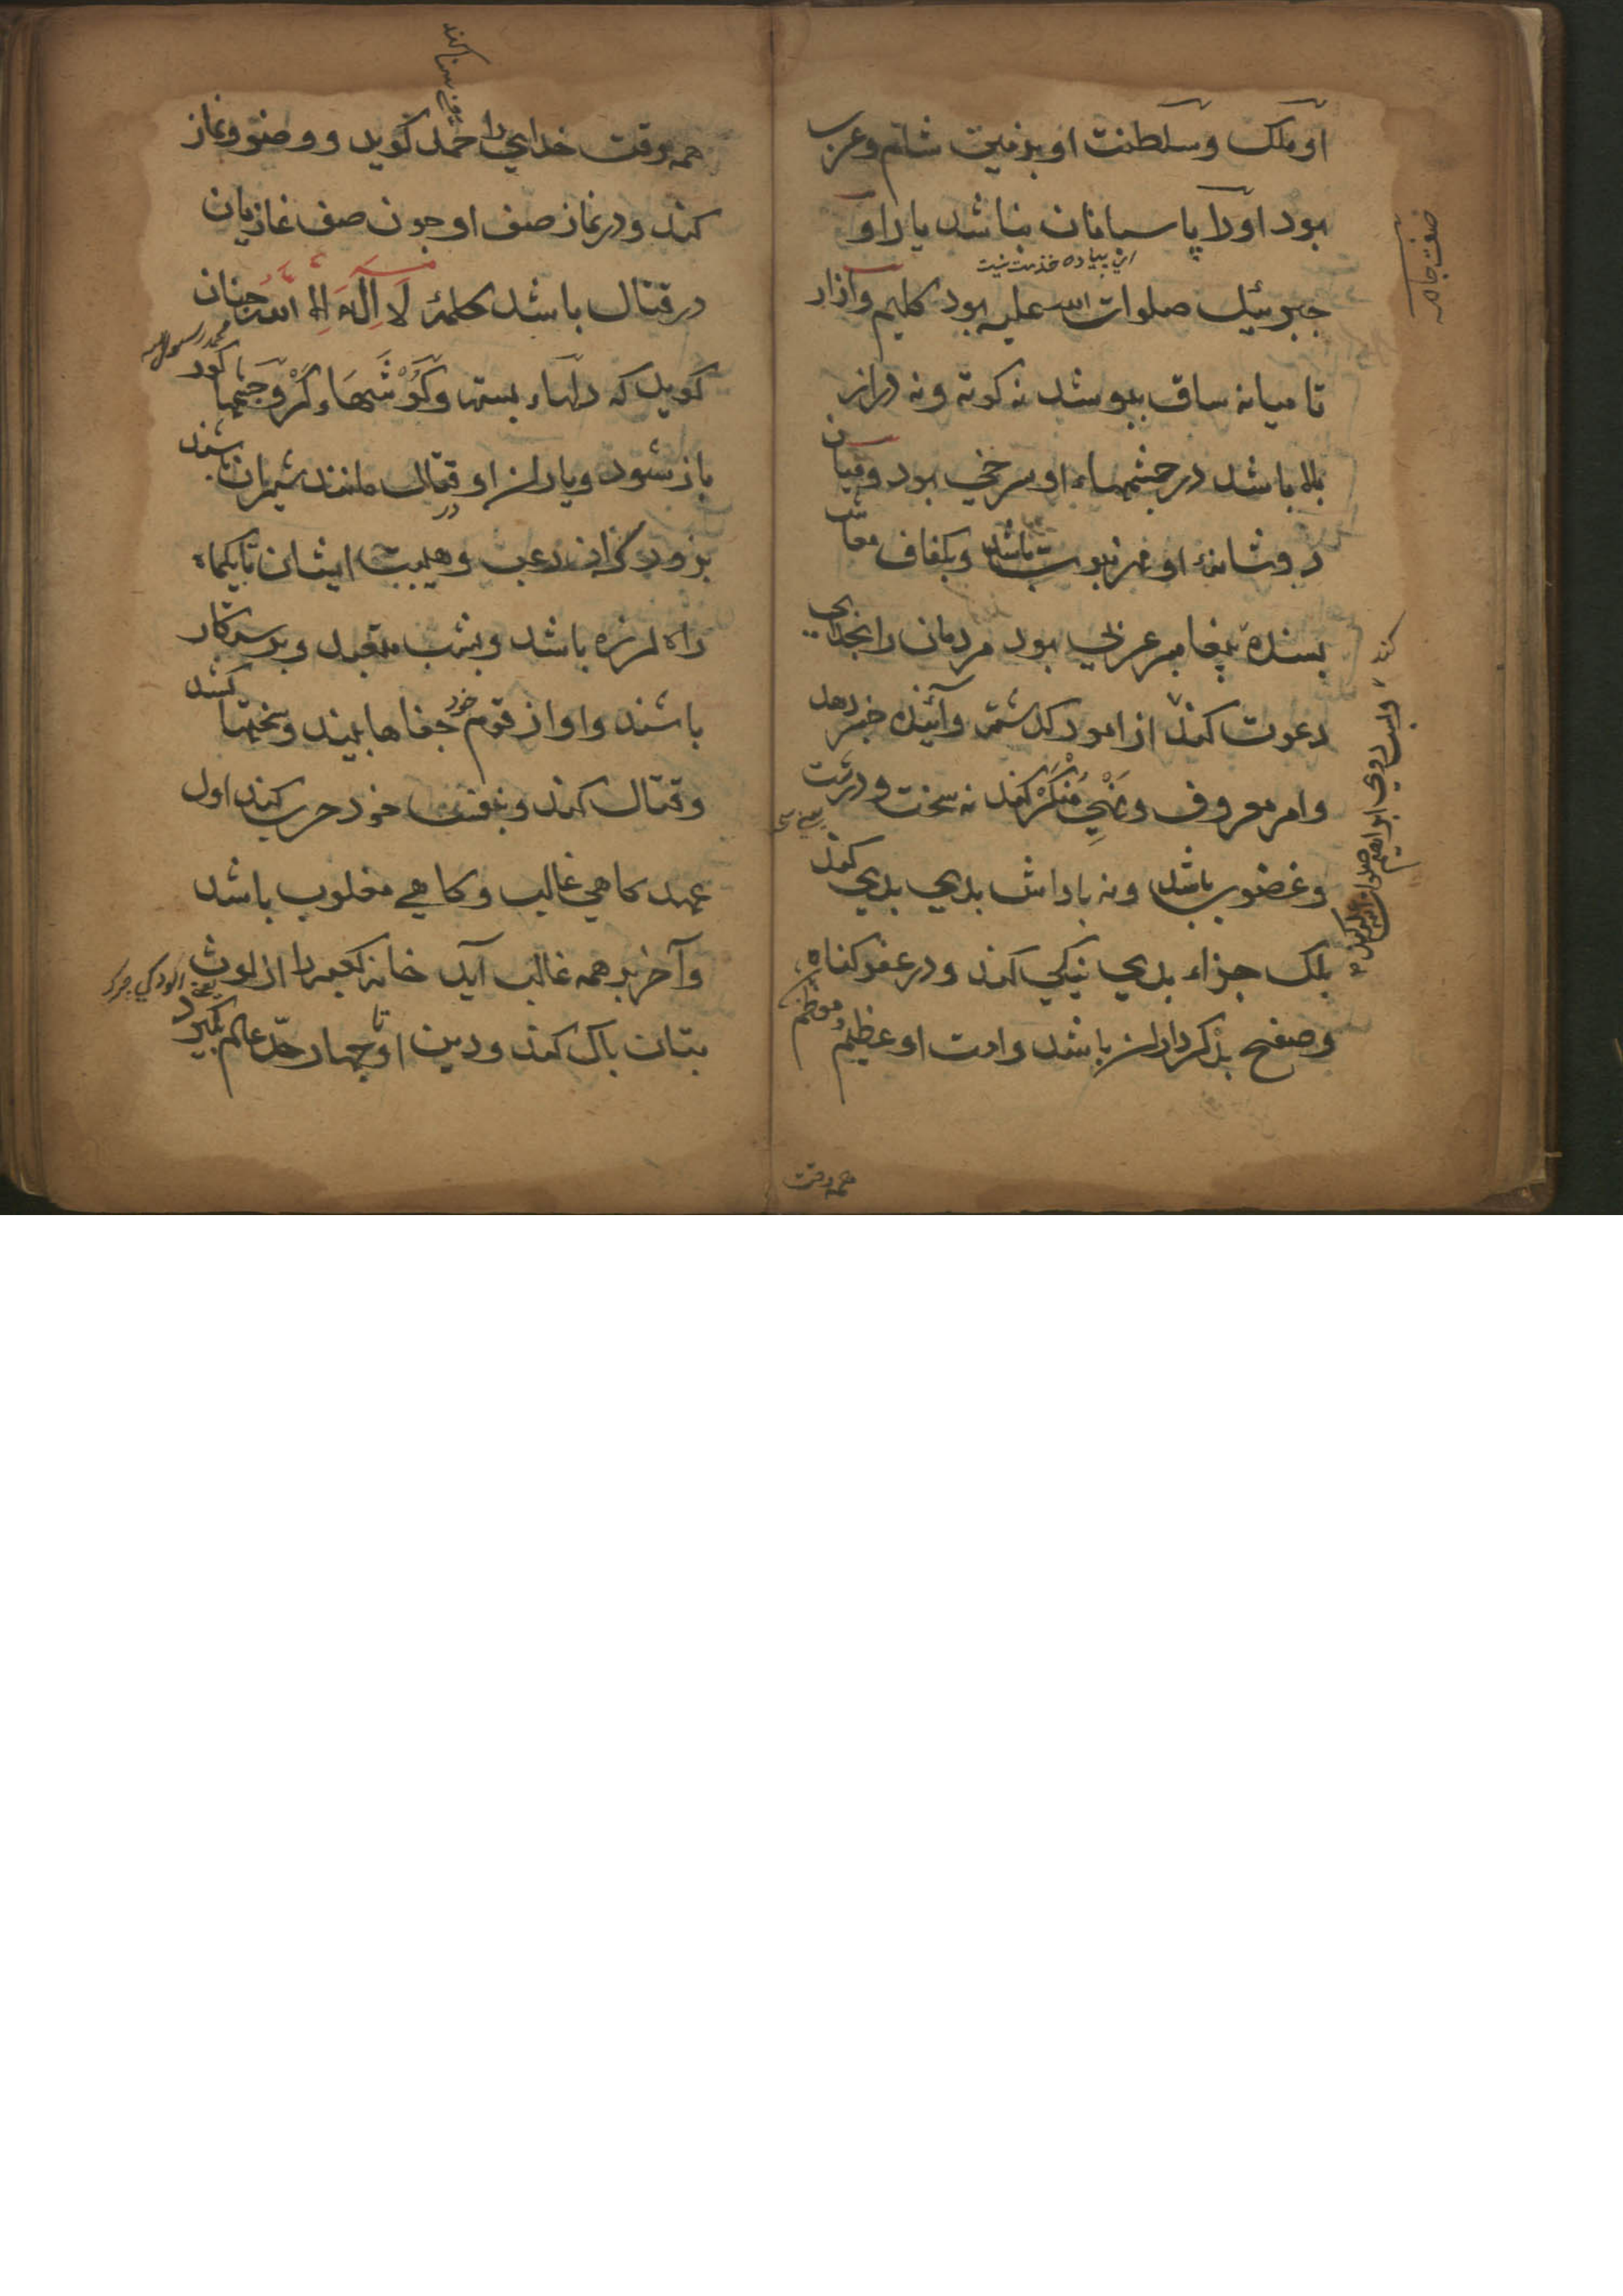 او ملک وسلطنت او بزمین شام وعرب
بود اورا پاسبانان نباشد یار او
جبرئیل صلوات الله علیه بود کلیم وازار
تا میانه ساق بپوشد نه کوته ونه دراز
باشد در چشمهاء او سرخی بود ومیان
دوشانهٔ او مهر نبوت باشد وبکفاف معاش
بسنده پیغامبر عربی بود مردمان را بخدای
دعوت کند از امور کذشته وآینده خبر دهد
وامر معروف ونهی منکر کند نه سخت ودرشت
وغضوب باشد ونه باداش بدی بدی کند
بلک جزاء بدی نیکی کند ودر عفو کناه
وصفح بذکرداران باشد وامت او عظیم
همه وقت
صفت جامه
همه وقت خدایرا حمد کوید ووضو ونماز
کند ودر نماز صف او جون صف غازیان
در قتال باشد کلمهٔ لا اله الا الله جنان
محمد رسول الله
کوید که دلهاء بسته وکوشهاء کر وجشمها کور
باز شود ویاران او در قتال مانند شیران باشند
بزودکذر رعب وهیبت ایشان تا یکماه
راه لرزه باشد وبشب متعبد وبر سر کار
باشند واو از قوم خود جفاها بیند وسختیها کشد
وقتال کند وبنفس خود حرب کند اول
عهد کاهی غالب وکاهی مغلوب باشد
وآخر بر همه غالب آید خانه کعبه را از لوث
بتان باک کند ودین او تا جهار حد عالم بکیرد